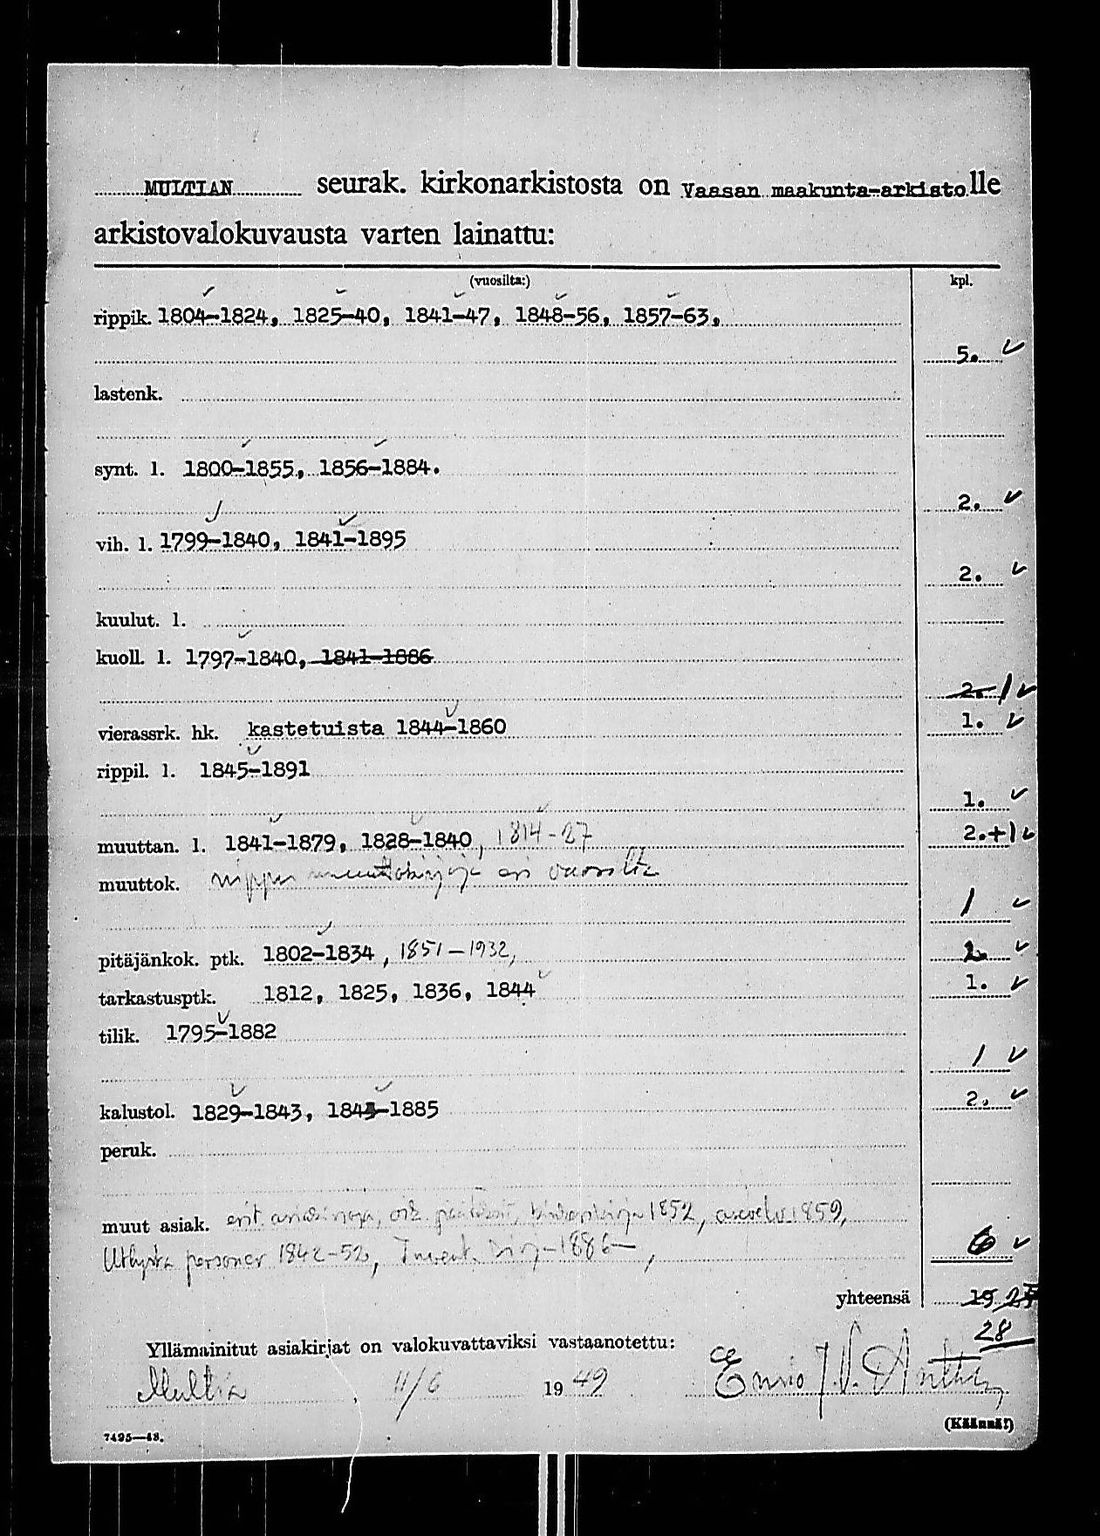 MULTIAN seurak. kirkonarkistosta on Vaasan maakunta-arkistolle
arkistovalokuvausta varten lainattu:
(vuosilta:) kpl.
rippik. 1804-1824, 1825-40, 1841-47, 1848-56, 1857-63,
5. ✓
lastenk.
synt. l. 1800-1855, 1856-1884.
2. ✓
vih. l. 1799-1840, 1841-1895
2. ✓
kuulut. l.
kuoll. l. 1797-1840, 1841-1886
2. 1 ✓
vierassrk. hk. kastetuista 1844-1860 1. ✓
rippil. l. 1845-1891
1. ✓
muuttan. l. 1841-1879, 1828-1840, 1814-27 2.+1 ✓
muuttok. nippu muuttokirjoja eri vuosilta
1 ✓
pitäjänkok. ptk. 1802-1834, 1851-1932, ✓
tarkastusptk. 1812, 1825, 1836, 1844 1. ✓
tilik. 1795-1882
1 ✓
kalustol. 1829-1843, 1843-1885 2. ✓
peruk.
muut asiak. erit. 1852, 1859,
Utlysta personer 1842-52, Invent. 1886-, 6 ✓
yhteensä 19
28
Yllämainitut asiakirjat on valokuvattaviksi vastaanotettu:
Multia, 11/6 1949 Ennio J. V.
(Käännä!)
7495—48.